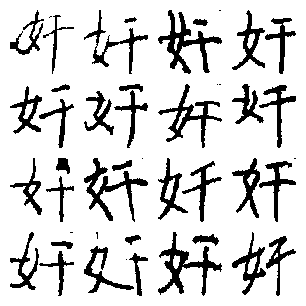 奸奸奸奸
奸奸奸奸
奸奸奸奸
奸奸奸奸